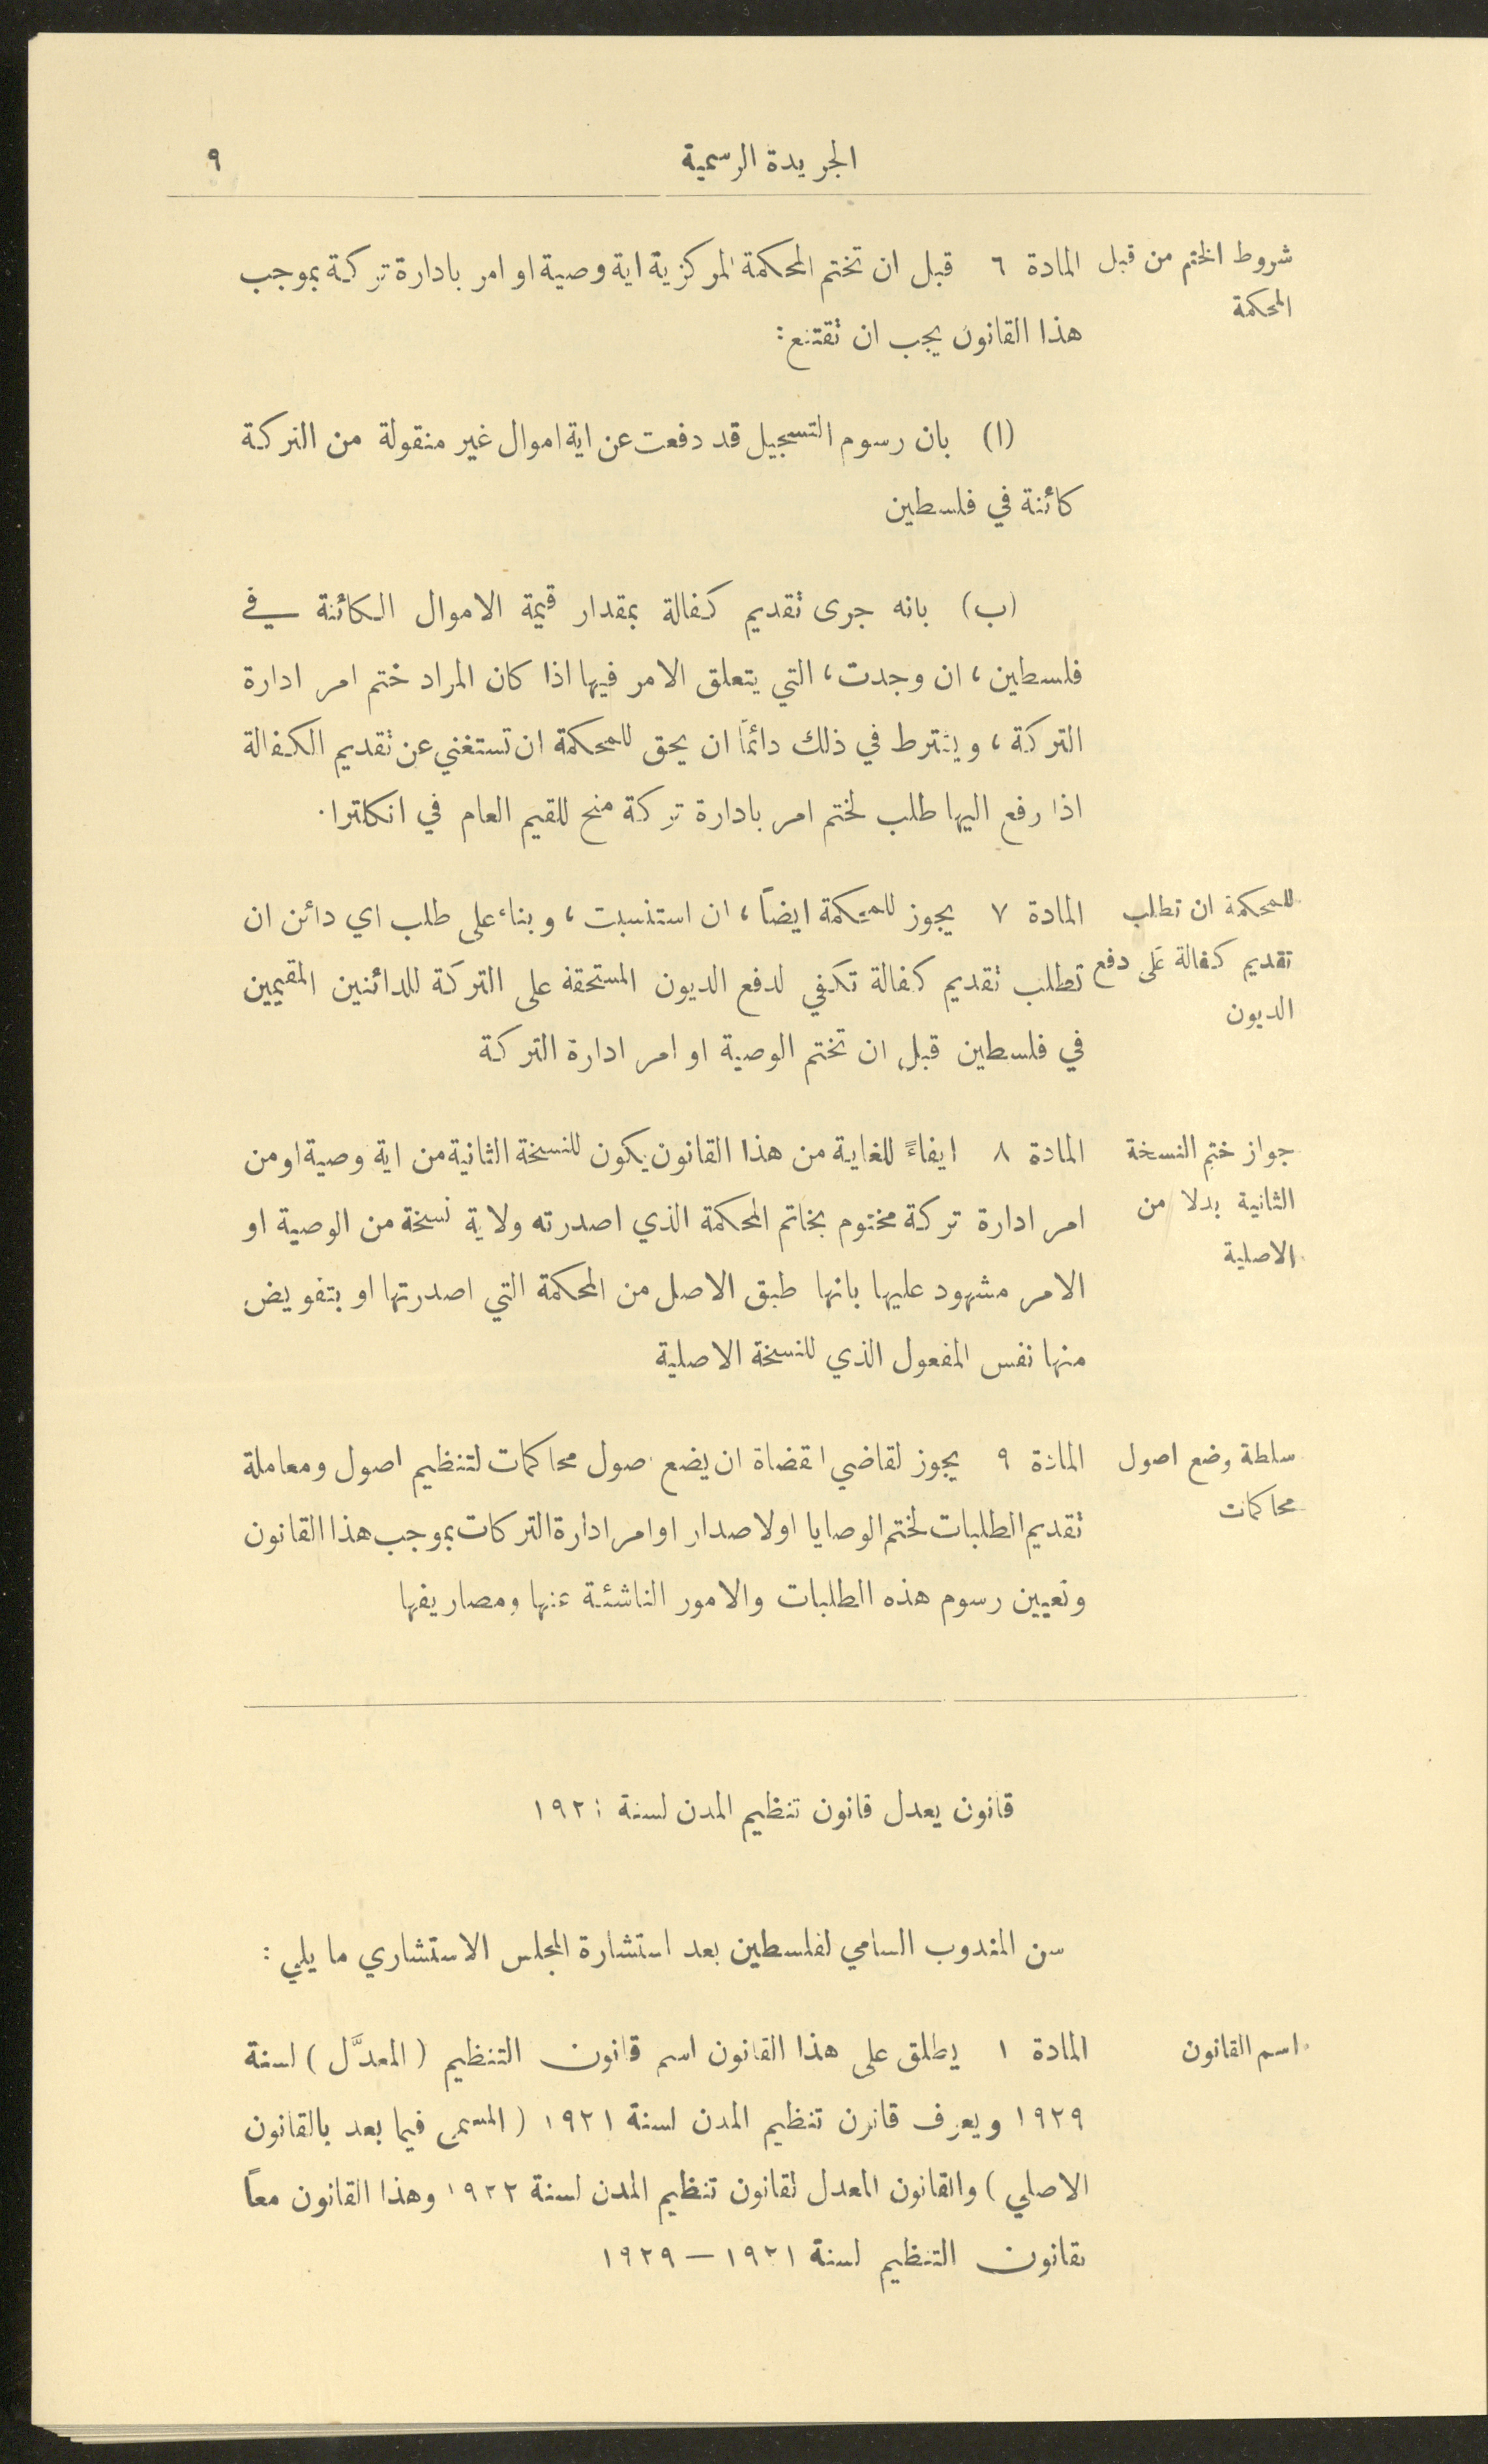 الجريدة الرسمية
٩
شروط الختم من قبل
المحكمة
المادة ٦ قبل ان تختم المحكمة المركزية اية وصية او امر بادارة تركة بموجب
هذا القانون يجب ان تقتنع:
(ا) بان رسوم التسجيل قد دفعت عن اية اموال غير منقولة من التركة
كائنة في فلسطين
(ب) بانه جرى تقديم كفالة بمقدار قيمة الاموال الكائنة في
فلسطين، ان وجدت، التي يتعلق الامر فيها اذا كان المراد ختم امر ادارة
التركة، ويشترط في ذلك دائماً ان يحق للمحكمة ان تستغني عن تقديم الكفالة
اذا رفع اليها طلب لختم امر بادارة تركة منح للقيم العام في انكلترا.
للمحكمة ان تطلب
تقديم كفالة على دفع
الديون
المادة ٧ يجوز للمحكمة ايضاً، ان استنسبت، وبناء على طلب اي دائن ان
تطلب تقديم كفالة تكفي لدفع الديون المستحقة على التركة للدائنين المقيمين
في فلسطين قبل ان تختم الوصية او امر ادارة التركة
جواز ختم النسخة
الثانية بدلا من
الاصلية
المادة ٨ ايفاءً للغاية من هذا القانون يكون للنسخة الثانية من اية وصية او من
امر ادارة تركة مختوم بخاتم المحكمة الذي اصدرته ولاية نسخة من الوصية او
الامر مشهود عليها بانها طبق الاصل من المحكمة التي اصدرتها او بتفويض
منها نفس المفعول الذي للنسخة الاصلية
سلطة وضع اصول
محاكمات
المادة ٩ يجوز لقاضي القضاة ان يضع اصول محاكمات لتنظيم اصول ومعاملة
تقديم الطلبات لختم الوصايا او لاصدار اوامر ادارة التركات بموجب هذا القانون
وتعيين رسوم هذه الطلبات والامور الناشئة عنها ومصاريفها
قانون يعدل قانون تنظيم المدن لسنة ١٩٢١
سن المندوب السامي لفلسطين بعد استشارة المجلس الاستشاري ما يلي:
اسم القانون
المادة ١ يطلق على هذا القانون اسم قانون التنظيم (المعدَّل) لسنة
١٩٢٩ ويعرف قانون تنظيم المدن لسنة ١٩٢١ (المسمى فيما بعد بالقانون
الاصلي) والقانون المعدل لقانون تنظيم المدن لسنة ١٩٢٢ وهذا القانون معاً
بقانون التنظيم لسنة ١٩٢١ — ١٩٢٩